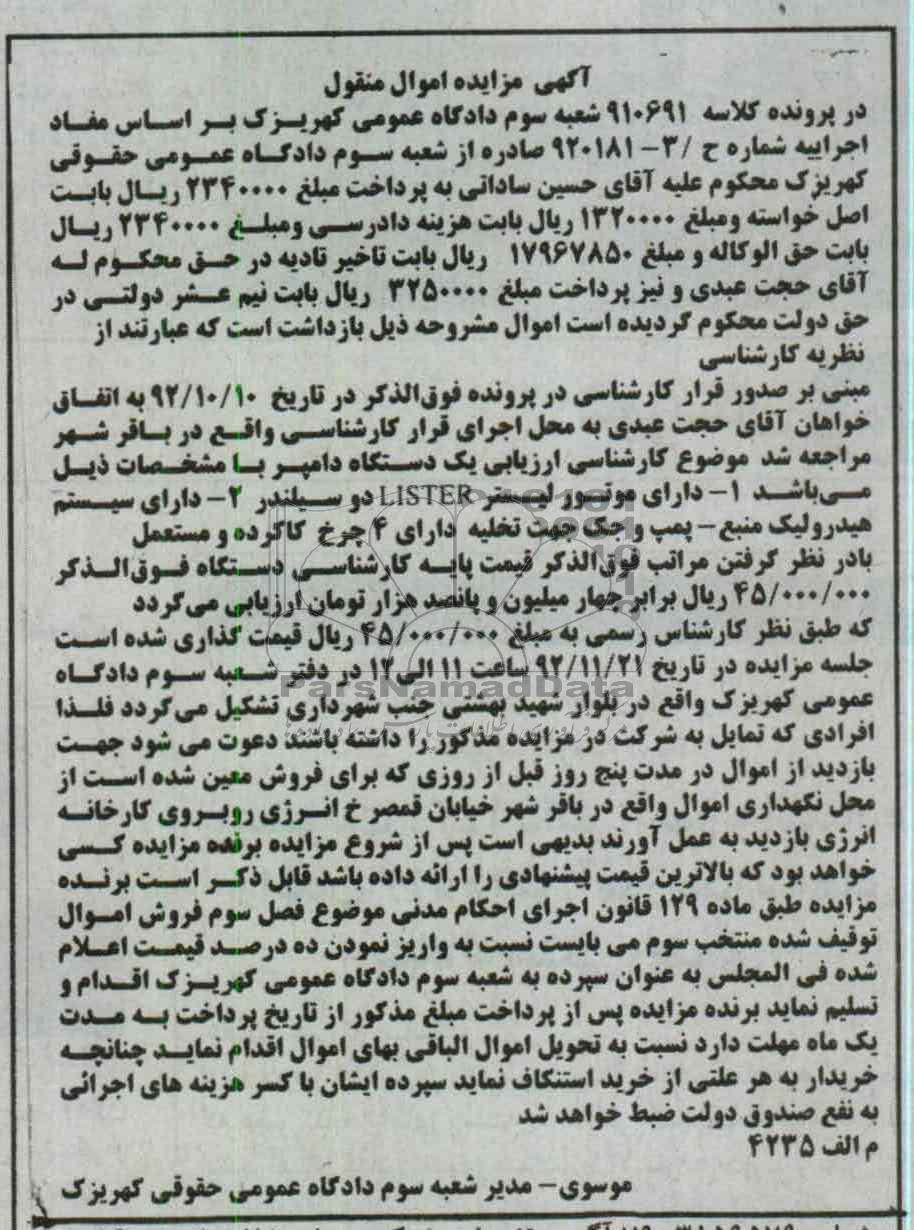 آگهی مزایده اموال منقول
در پرونده کلاسه ۹۱۰۶۹۱ شعبه سوم دادگاه عمومی کهریزک بر اساس مفاد
اجراییه شماره ح /۳- ۹۲۰۱۸۱ صادره از شعبه سوم دادگاه عمومی حقوقی
کهریزک محکوم علیه آقای حسین ساداتی به پرداخت مبلغ ۲۳۴۰۰۰۰ ریال بابت
اصل خواسته ومبلغ ۱۳۲۰۰۰۰ ریال بابت هزینه دادرسی ومبلغ ۲۳۴۰۰۰۰ ریال
بابت حق الوکاله و مبلغ ۱۷۹۶۷۸۵۰ ریال بابت تاخیر تادیه در حق محکوم له
آقای حجت عبدی و نیز پرداخت مبلغ ۳۲۵۰۰۰۰ ریال بابت نیم عشر دولتی در
حق دولت محکوم گردیده است اموال مشروحه ذیل بازداشت است که عبارتند از
نظریه کارشناسی
مبنی بر صدور قرار کارشناسی در پرونده فوق‌الذکر در تاریخ ۹۲/۱۰/۱۰ به اتفاق
خواهان آقای حجت عبدی به محل اجرای قرار کارشناسی واقع در باقر شهر
مراجعه شد موضوع کارشناسی ارزیابی یک دستگاه دامپر با مشخصات ذیل
می‌باشد ۱- دارای موتور لیستر LISTER دو سیلندر ۲- دارای سیستم
هیدرولیک منبع- پمپ و جک جهت تخلیه دارای ۴ چرخ کاکرده و مستعمل
بادر نظر گرفتن مراتب فوق‌الذکر قیمت پایه کارشناسی دستگاه فوق‌الذکر
۴۵/۰۰۰/۰۰۰ ریال برابر چهار میلیون و پانصد هزار تومان ارزیابی می‌گردد
که طبق نظر کارشناس رسمی به مبلغ ۴۵/۰۰۰/۰۰۰ ریال قیمت گذاری شده است
جلسه مزایده در تاریخ ۹۲/۱۱/۲۱ ساعت ۱۱ الی ۱۲ در دفتر شعبه سوم دادگاه
عمومی کهریزک واقع در بلوار شهید بهشتی جنب شهرداری تشکیل می‌گردد فلذا
افرادی که تمایل به شرکت در مزایده مذکور را داشته باشند دعوت می شود جهت
بازدید از اموال در مدت پنج روز قبل از روزی که برای فروش معین شده است از
محل نگهداری اموال واقع در باقر شهر خیابان قمصر خ انرژی روبروی کارخانه
انرژی بازدید به عمل آورند بدیهی است پس از شروع مزایده برنده مزایده کسی
خواهد بود که بالاترین قیمت پیشنهادی را ارائه داده باشد قابل ذکر است برنده
مزایده طبق ماده ۱۲۹ قانون اجرای احکام مدنی موضوع فصل سوم فروش اموال
توقیف شده منتخب سوم می بایست نسبت به واریز نمودن ده درصد قیمت اعلام
شده فی المجلس به عنوان سپرده به شعبه سوم دادگاه عمومی کهریزک اقدام و
تسلیم نماید برنده مزایده پس از پرداخت مبلغ مذکور از تاریخ پرداخت به مدت
یک ماه مهلت دارد نسبت به تحویل اموال الباقی بهای اموال اقدام نماید چنانچه
خریدار به هر علتی از خرید استنکاف نماید سپرده ایشان با کسر هزینه های اجرائی
به نفع صندوق دولت ضبط خواهد شد
م الف ۴۲۳۵
موسوی- مدیر شعبه سوم دادگاه عمومی حقوقی کهریزک
ParsNamadData